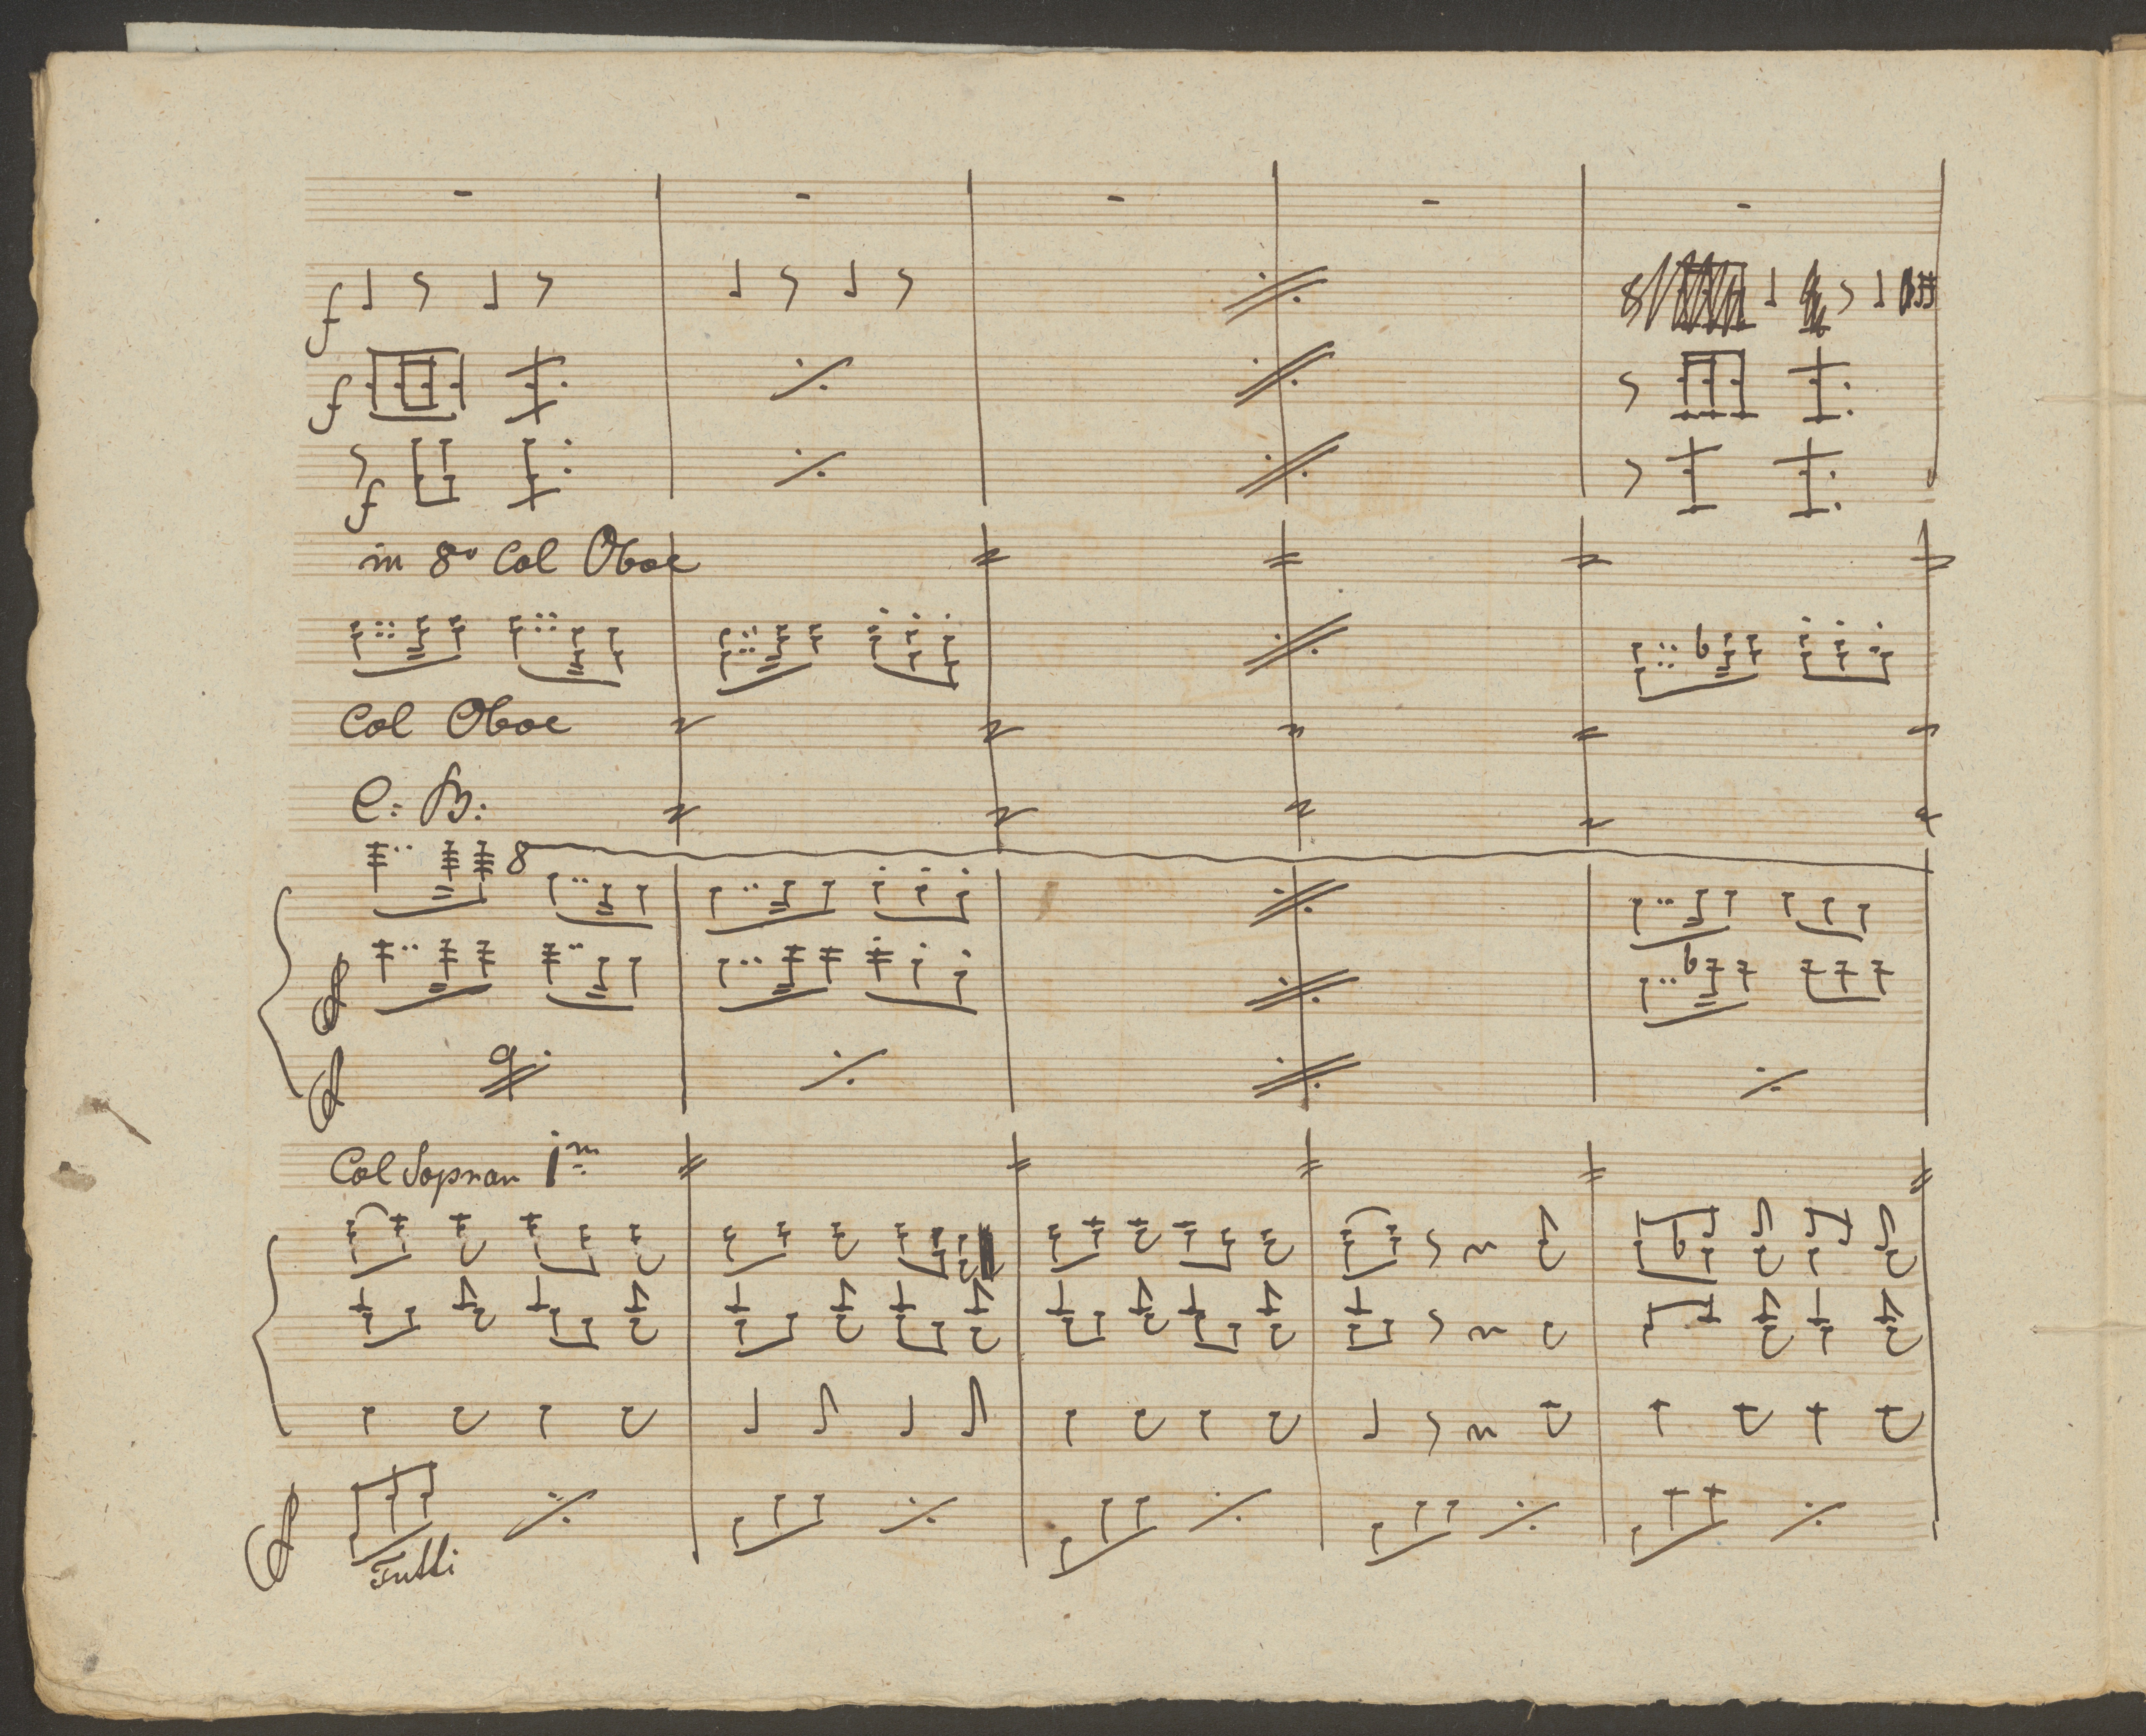 f
f
f
in 8va Col Oboe
Col Oboe
C: B:
8
Col Sopran 1m
Tutti